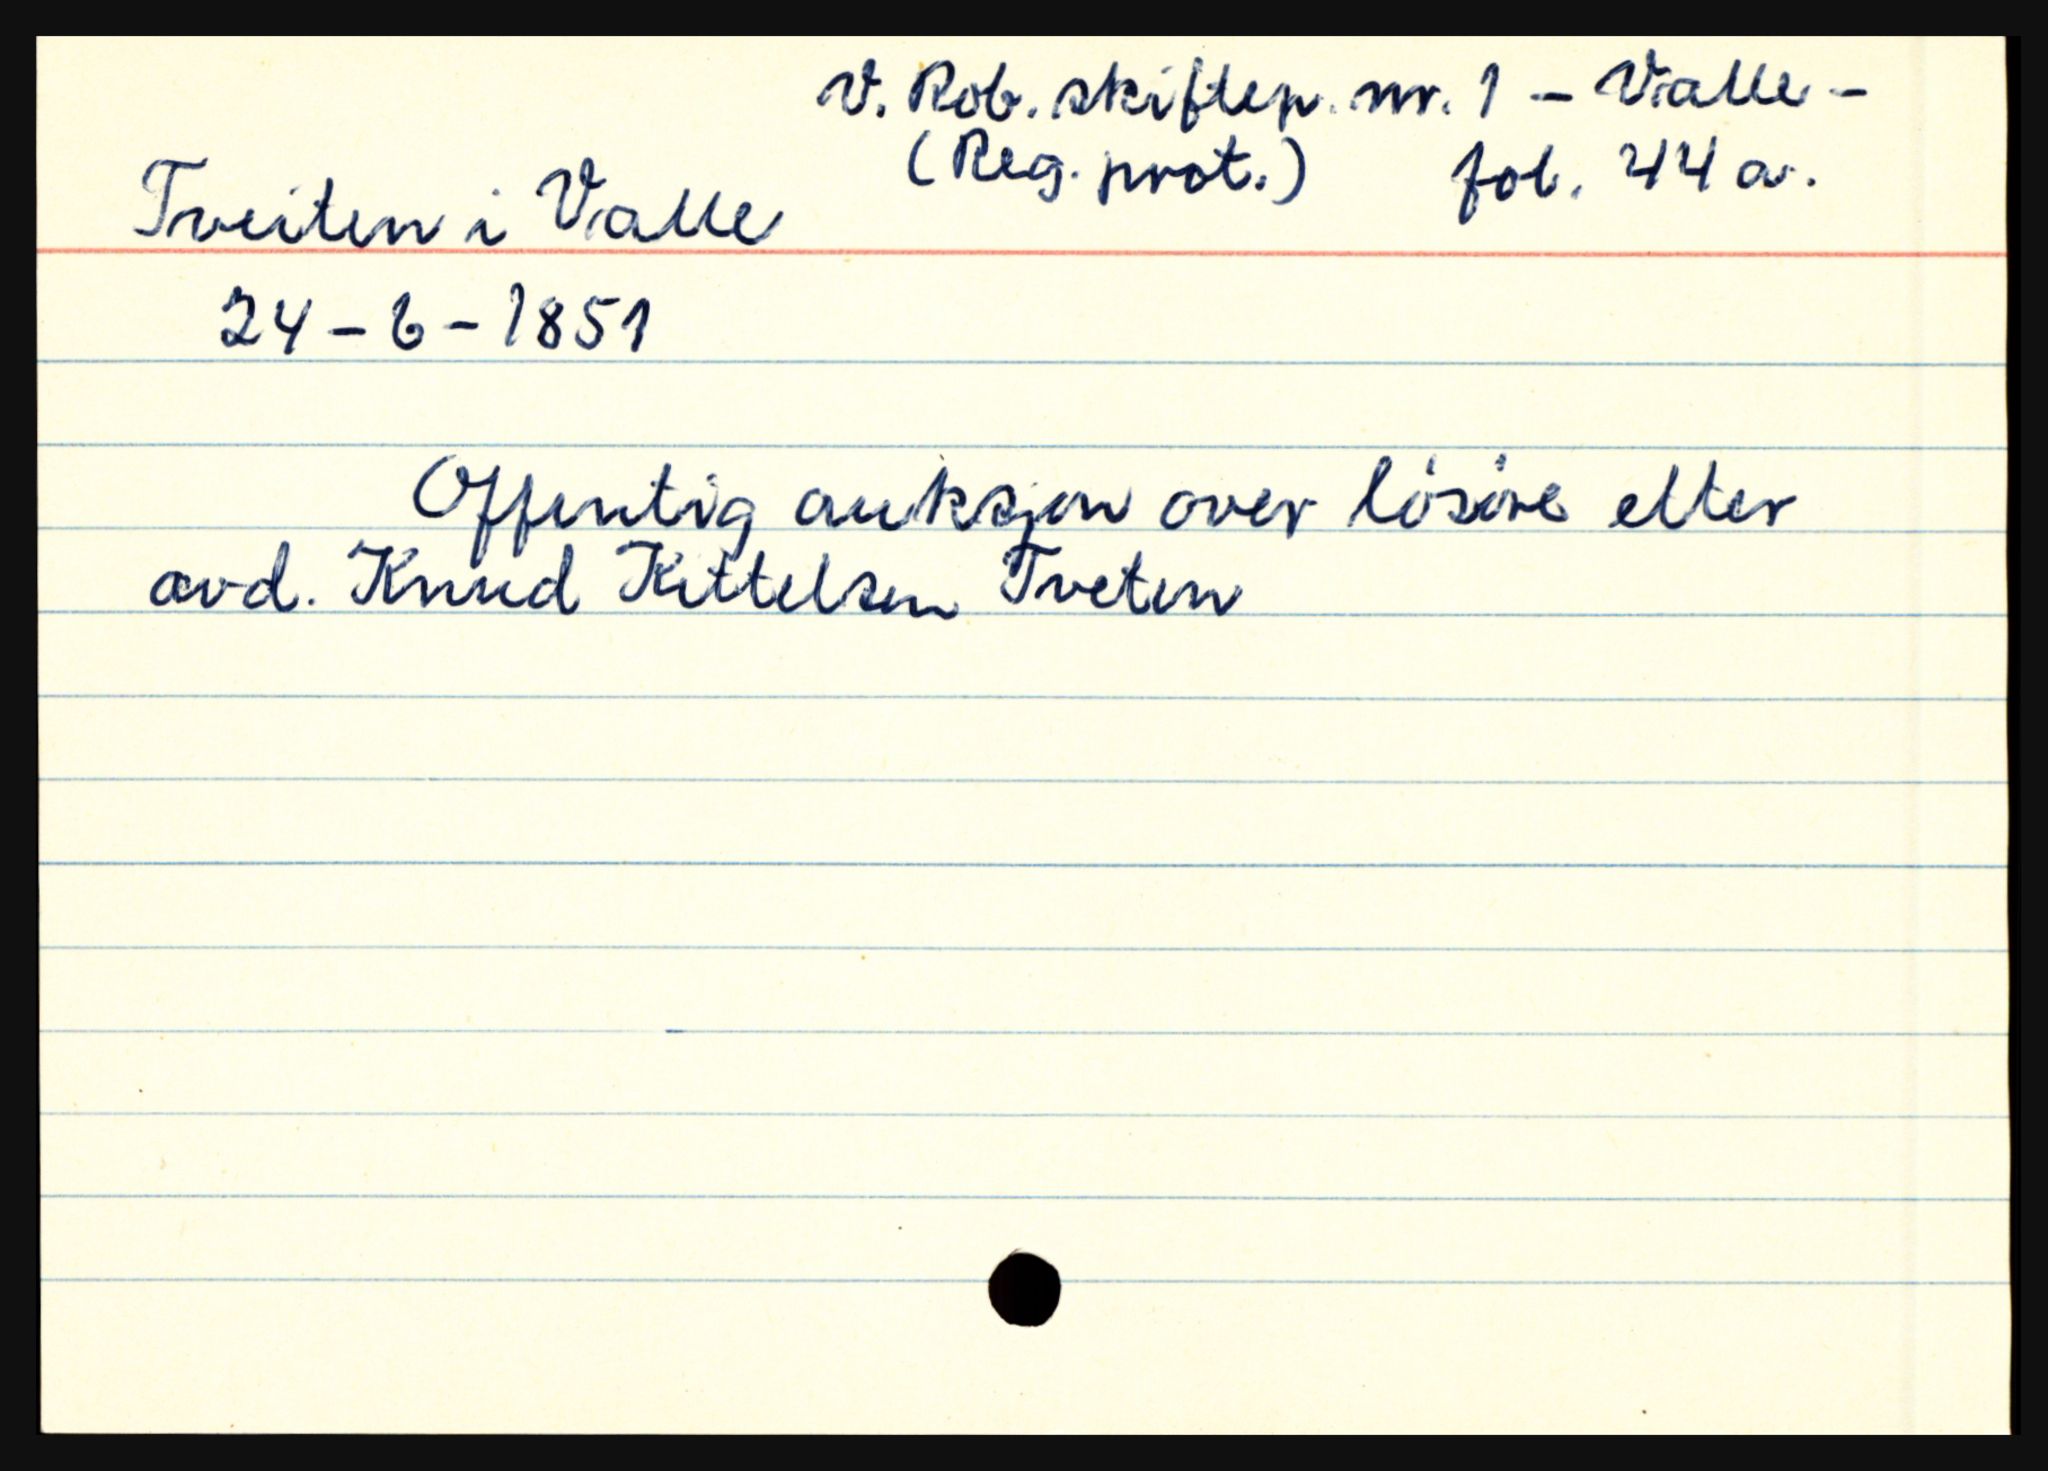 V. Rob. skiftep. nr. 1 – Valle –
(Reg. prot.) fol. 44 a.
Tveiten i Valle
24 – 6 – 1851
Offentlig auksjon over lösöre etter
avd. Knud Kittelsen Tveten